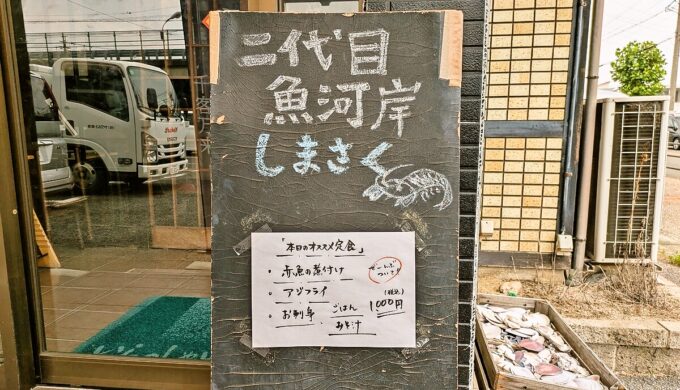 二代目
魚河岸
しまさく
「本日のオススメ定食」
・赤魚の煮付け
・アジフライ
・お刺身
ごはん
みそ汁
ぜーんぶ
ついて!
(税込)
1000円